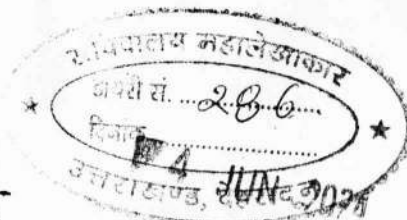 सचिवालय महालेखाकार
डायरी सं. ...286...
दिनांक
4 JUN
उत्तराखण्ड, देहरादून